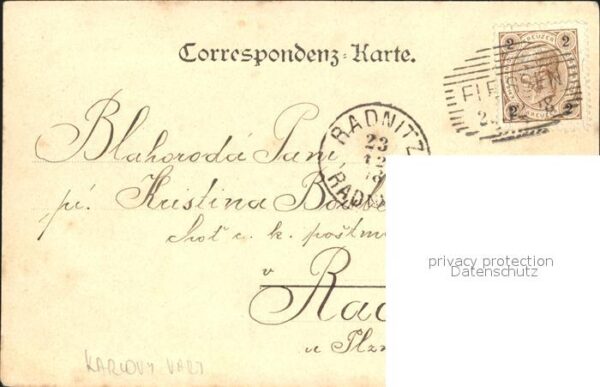 Correspondenz-Karte.
2 KREUZER 2
FLEISSEN
2 2
RADNITZ
23
12
RADN
Blahorodá Paní
pí. Kristina
c. k. poštm
v
Rad
u Plzn
privacy protection
Datenschutz
KARLOVY VARY